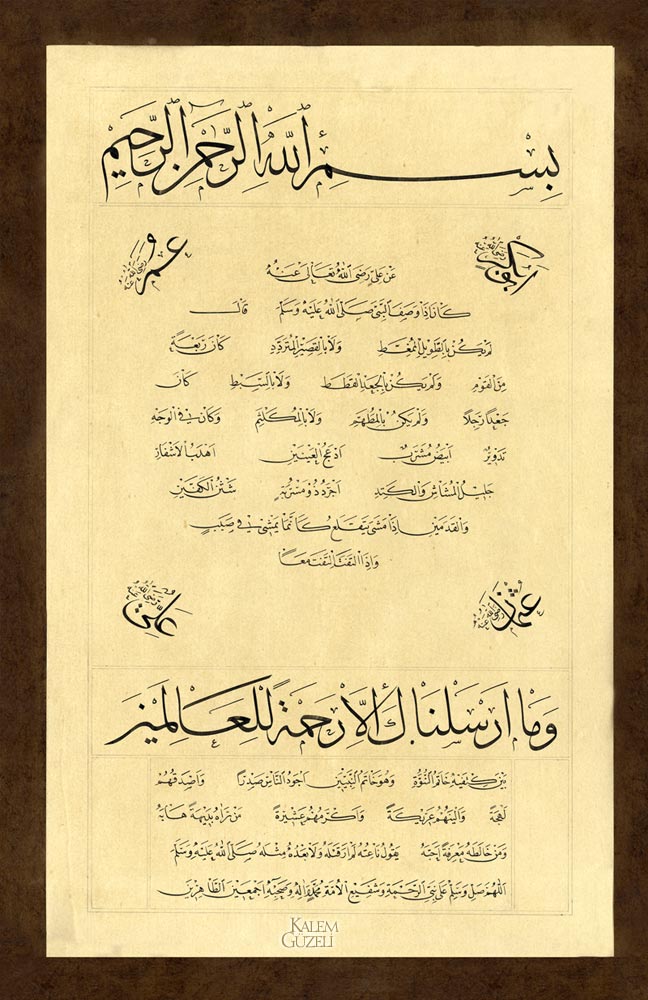 بِسْمِ اللّٰهِ الرَّحْمٰنِ الرَّحِيمِ
ابوبكر رضى الله عنه
عمر رضى الله عنه
عَنْ عَلِيٍّ رَضِىَ اللّٰهُ تَعَالٰى عَنْهُ
كَانَ اِذَا وَصَفَ النَّبِىَّ صَلَّى اللّٰهُ عَلَيْهِ وَسَلَّمَ قَالَ
لَمْ يَكُنْ بِالطَّوِيلِ الْمُمَّغِطِ وَلَا بِالْقَصِيرِ الْمُتَرَدِّدِ كَانَ رَبْعَةً
مِنَ الْقَوْمِ وَلَمْ يَكُنْ بِالْجَعْدِ الْقَطَطِ وَلَا بِالسَّبِطِ كَانَ
جَعْدًا رَجِلًا وَلَمْ يَكُنْ بِالْمُطَهَّمِ وَلَا بِالْمُكَلْثَمِ وَكَانَ فِى الْوَجْهِ
تَدْوِيرٌ اَبْيَضُ مُشْرَبٌ اَدْعَجُ الْعَيْنَيْنِ اَهْدَبُ الْاَشْفَارِ
جَلِيلُ الْمُشَاشِ وَالْكَتِدِ اَجْرَدُ ذُو مَسْرُبَةٍ شَثْنُ الْكَفَّيْنِ
وَالْقَدَمَيْنِ اِذَا مَشٰى يَتَقَلَّعُ كَاَنَّمَا يَمْشِى فِى صَبَبٍ
وَاِذَا الْتَفَتَ الْتَفَتَ مَعًا
عثمان رضى الله عنه
على رضى الله عنه
وَمَا اَرْسَلْنَاكَ اِلَّا رَحْمَةً لِلْعَالَمِينَ
بَيْنَ كَتِفَيْهِ خَاتَمُ النُّبُوَّةِ وَهُوَ خَاتَمُ النَّبِيِّينَ اَجْوَدُ النَّاسِ صَدْرًا وَاَصْدَقُهُمْ
لَهْجَةً وَاَلْيَنُهُمْ عَرِيكَةً وَاَكْرَمُهُمْ عَشِيرَةً مَنْ رَاٰهُ بَدِيهَةً هَابَهُ
وَمَنْ خَالَطَهُ مَعْرِفَةً اَحَبَّهُ يَقُولُ نَاعِتُهُ لَمْ اَرَ قَبْلَهُ وَلَا بَعْدَهُ مِثْلَهُ صَلَّى اللّٰهُ عَلَيْهِ وَسَلَّمَ
اَللّٰهُمَّ صَلِّ وَسَلِّمْ عَلٰى نَبِىِّ الرَّحْمَةِ وَشَفِيعِ الْاُمَّةِ مُحَمَّدٍ وَاٰلِهِ وَصَحْبِهِ اَجْمَعِينَ الطَّاهِرِينَ
KALEM
GÜZELİ